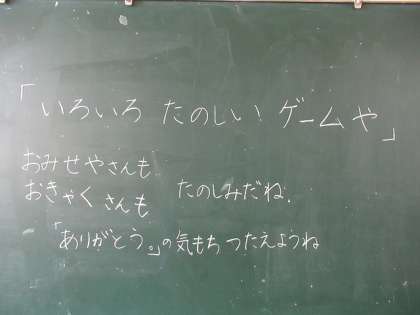 「いろいろ たのしい! ゲームや」
おみせやさんも
おきゃくさんも たのしみだね.
「ありがとう。」の気もち つたえようね